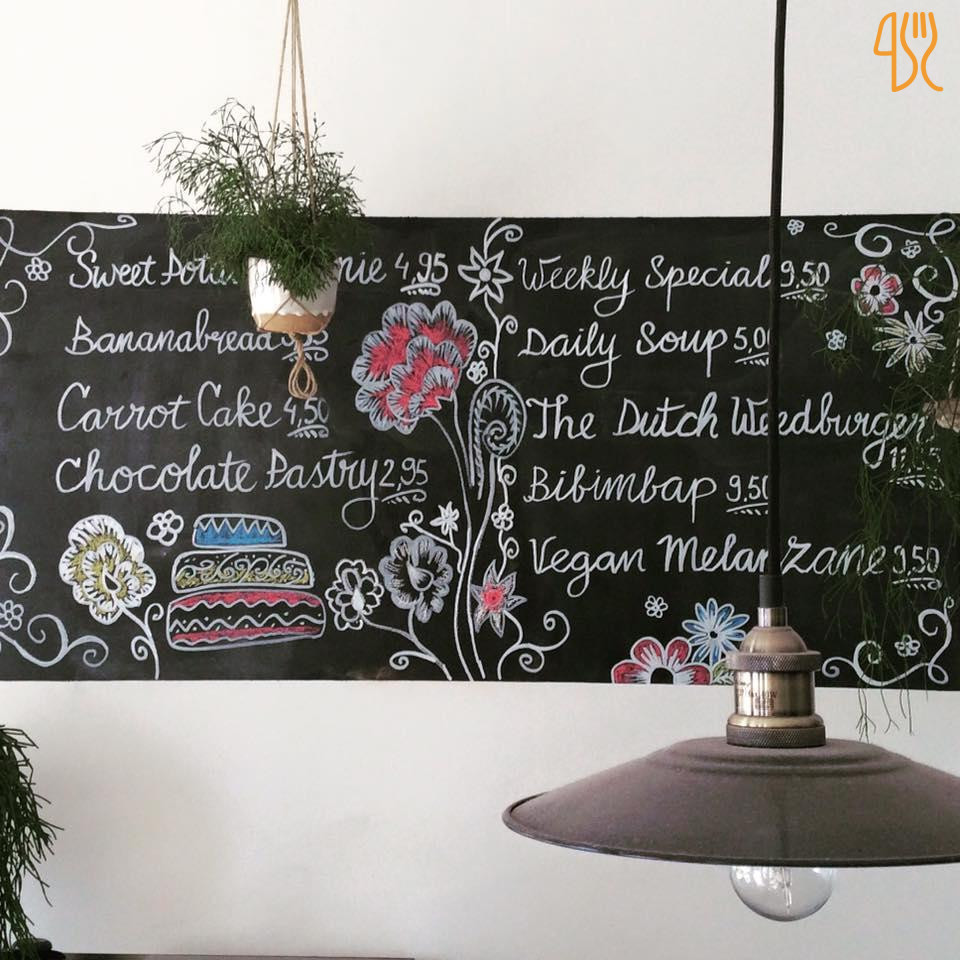 Sweet 4,95
Bananabread
Carrot Cake 4,50
Chocolate Pastry 2,95
Weekly Special 9,50
Daily Soup 5,00
The Dutch Weedburger
Bibimbap 9,50
Vegan Melanzane 9,50